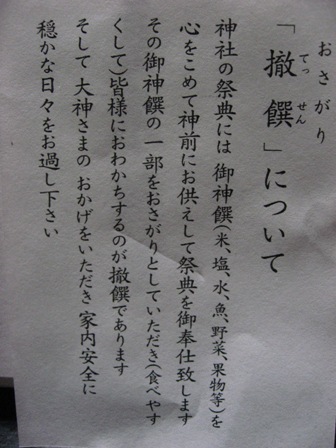 おさがり
「撤饌」について
てっせん
神社の祭典には 御神饌(米、塩、水、魚、野菜、果物等)を
心をこめて神前にお供えして祭典を御奉仕致します
その御神饌の一部をおさがりとしていただき(食べやす
くして)皆様におわかちするのが撤饌であります
そして 大神さまの おかげをいただき 家内安全に
穏かな日々をお過し下さい